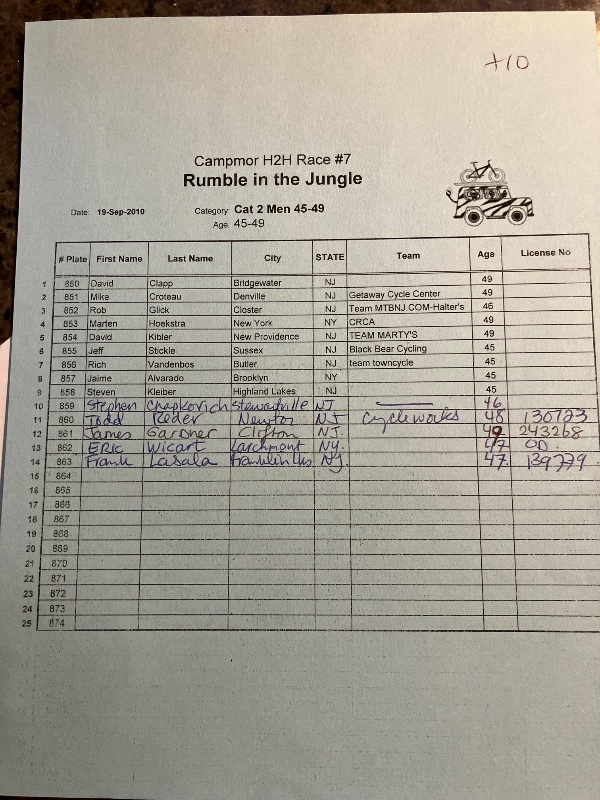 +10
Campmor H2H Race #7
Rumble in the Jungle
Date: 19-Sep-2010 Category Cat 2 Men 45-49
Age 45-49
# Plate First Name Last Name City STATE Team Age License No
1 850 David Clapp Bridgewater NJ 49
2 851 Mike Croteau Denville NJ Getaway Cycle Center 49
3 852 Rob Glick Closter NJ Team MTBNJ.COM-Halter's 46
4 853 Marten Hoekstra New York NY CRCA 49
5 854 David Kibler New Providence NJ TEAM MARTY'S 49
6 855 Jeff Stickle Sussex NJ Black Bear Cycling 45
7 856 Rich Vandenbos Butler NJ team towncycle 45
8 857 Jaime Alvarado Brooklyn NY 45
9 858 Steven Kleiber Highland Lakes NJ 45
10 859 Stephen Chapkovich Stewartville NJ 46
11 860 Todd Reder Newton NJ Cycleworks 48 130723
12 861 James Gardner Clifton NJ. 49 243268
13 862 ERIC Wicart Larchmont Ny. 47 OD
14 863 Frank Lasala Franklin Lks NJ. 47. 139779
15 864
16 865
17 866
18 867
19 868
20 869
21 870
22 871
23 872
24 873
25 874